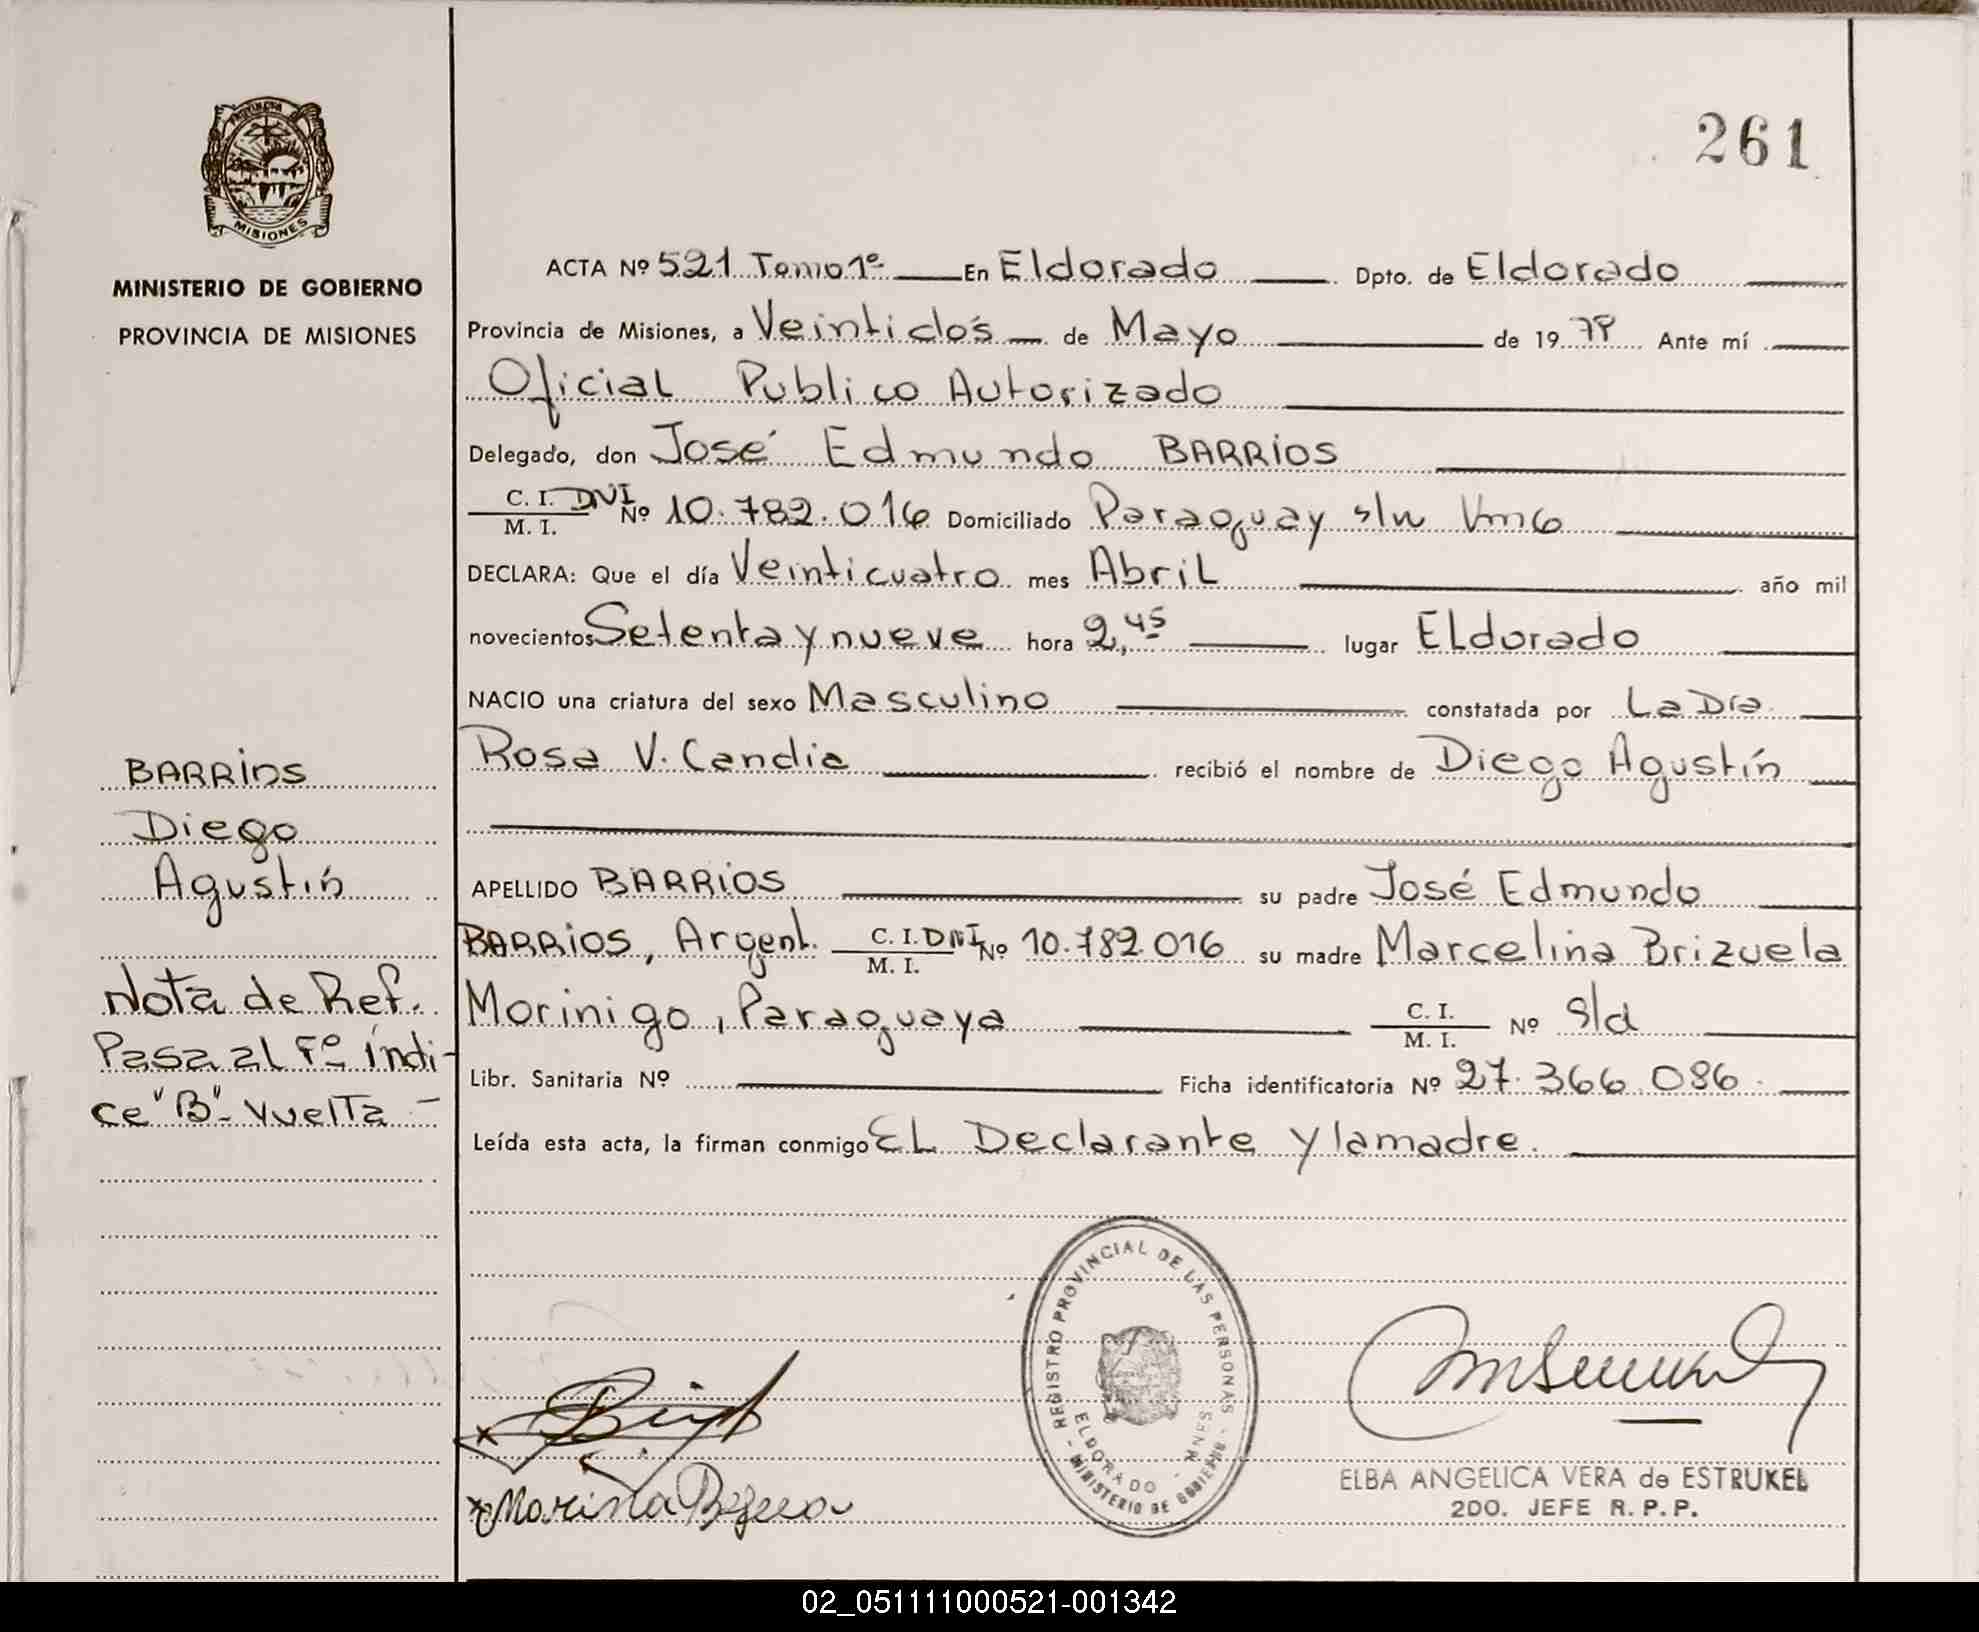 261
PROVINCIA
MISIONES
MINISTERIO DE GOBIERNO
PROVINCIA DE MISIONES
ACTA Nº 521 Tomo 1º En Eldorado Dpto. de Eldorado
Provincia de Misiones, a Veintidós de Mayo de 19 79 Ante mí
Oficial Publico Autorizado
Delegado, don José Edmundo BARRIOS
C. I. DNI Nº 10.782.016 Domiciliado Paraguay s/n Km 6
M. I.
DECLARA: Que el día Veinticuatro mes Abril año mil
novecientos Setenta y nueve hora 2,45 lugar Eldorado
NACIO una criatura del sexo Masculino constatada por La Dra
Rosa V. Candia recibió el nombre de Diego Agustín
APELLIDO BARRIOS su padre José Edmundo
BARRIOS, Argent. C. I. DNI Nº 10.782.016 su madre Marcelina Brizuela
M. I.
Morinigo, Paraguaya C. I. Nº S/d
M. I.
Libr. Sanitaria Nº Ficha identificatoria Nº 27.366.086
Leída esta acta, la firman conmigo El Declarante y la madre.
BARRIOS
Diego
Agustín
Nota de Ref.
Pasa al Fº índi-
ce "B" - vuelta -
REGISTRO PROVINCIAL DE LAS PERSONAS
ELDORADO - MNES
- MINISTERIO DE GOBIERNO -
ELBA ANGELICA VERA de ESTRUKEL
2DO. JEFE R. P. P.
02_051111000521-001342